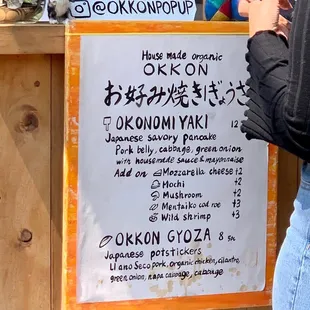 @OKKONPOPUP
House made organic
OKKON
お好み焼きぎょうざ
OKONOMIYAKI 12
Japanese savory pancake
Pork belly, cabbage, green onion
with housemade sauce & mayonnaise
Add on Mozzarella cheese +2
Mochi +2
Mushroom +2
Mentaiko cod roe +3
Wild shrimp +3
OKKON GYOZA 8
Japanese potstickers
Llano Seco pork, organic chicken, cilantro,
green onion, napa cabbage, cabbage